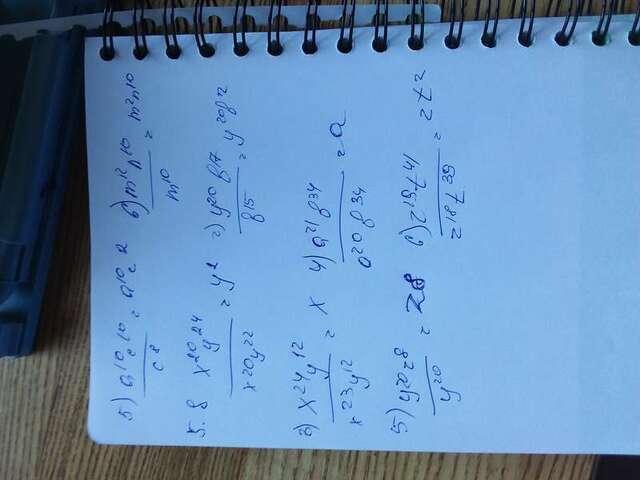 б) a¹⁰c¹⁰/c⁸ = a¹⁰c² в) m¹²n¹⁰/m¹⁰ = m²n¹⁰
5.8 x²⁰y²⁴/x²⁰y²² = y² 2) y²⁰b¹⁷/b¹⁵ = y²⁰b²
3) x²⁴y¹²/x²³y¹² = x 4) a²¹b³⁴/a²⁰b³⁴ = a
5) y²⁰z⁸/y²⁰ = z⁸ 6) z¹⁹t⁴¹/z¹⁸t³⁹ = zt²